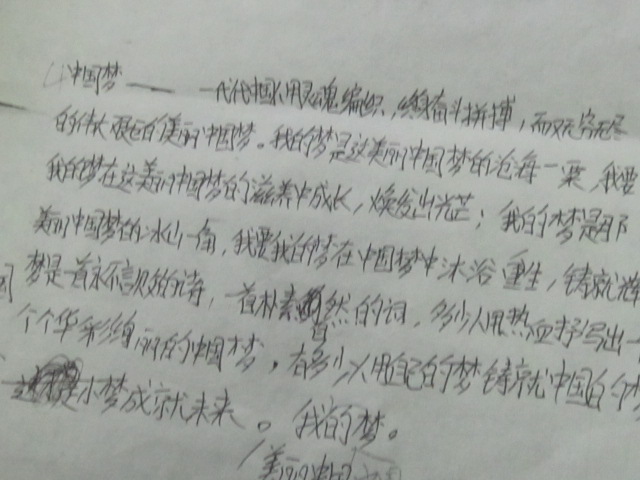 中国梦——一代代中国人用灵魂编织，继续奋斗拼搏，而又无穷无尽
的伟大艰巨的美丽中国梦。我的梦是这美丽中国梦的沧海一粟，我要
我的梦在这美丽中国梦的滋养中成长，焕发出光芒；我的梦是那
美丽中国梦的冰山一角，我要我的梦在中国梦中沐浴重生，铸就辉
梦是一首永不言败的诗，一首朴素自然的词，多少人用热血抒写出一
个个华彩绚丽的中国梦，有多少人用自己的梦铸就中国的梦
小梦成就未来。我的梦。
美丽中国